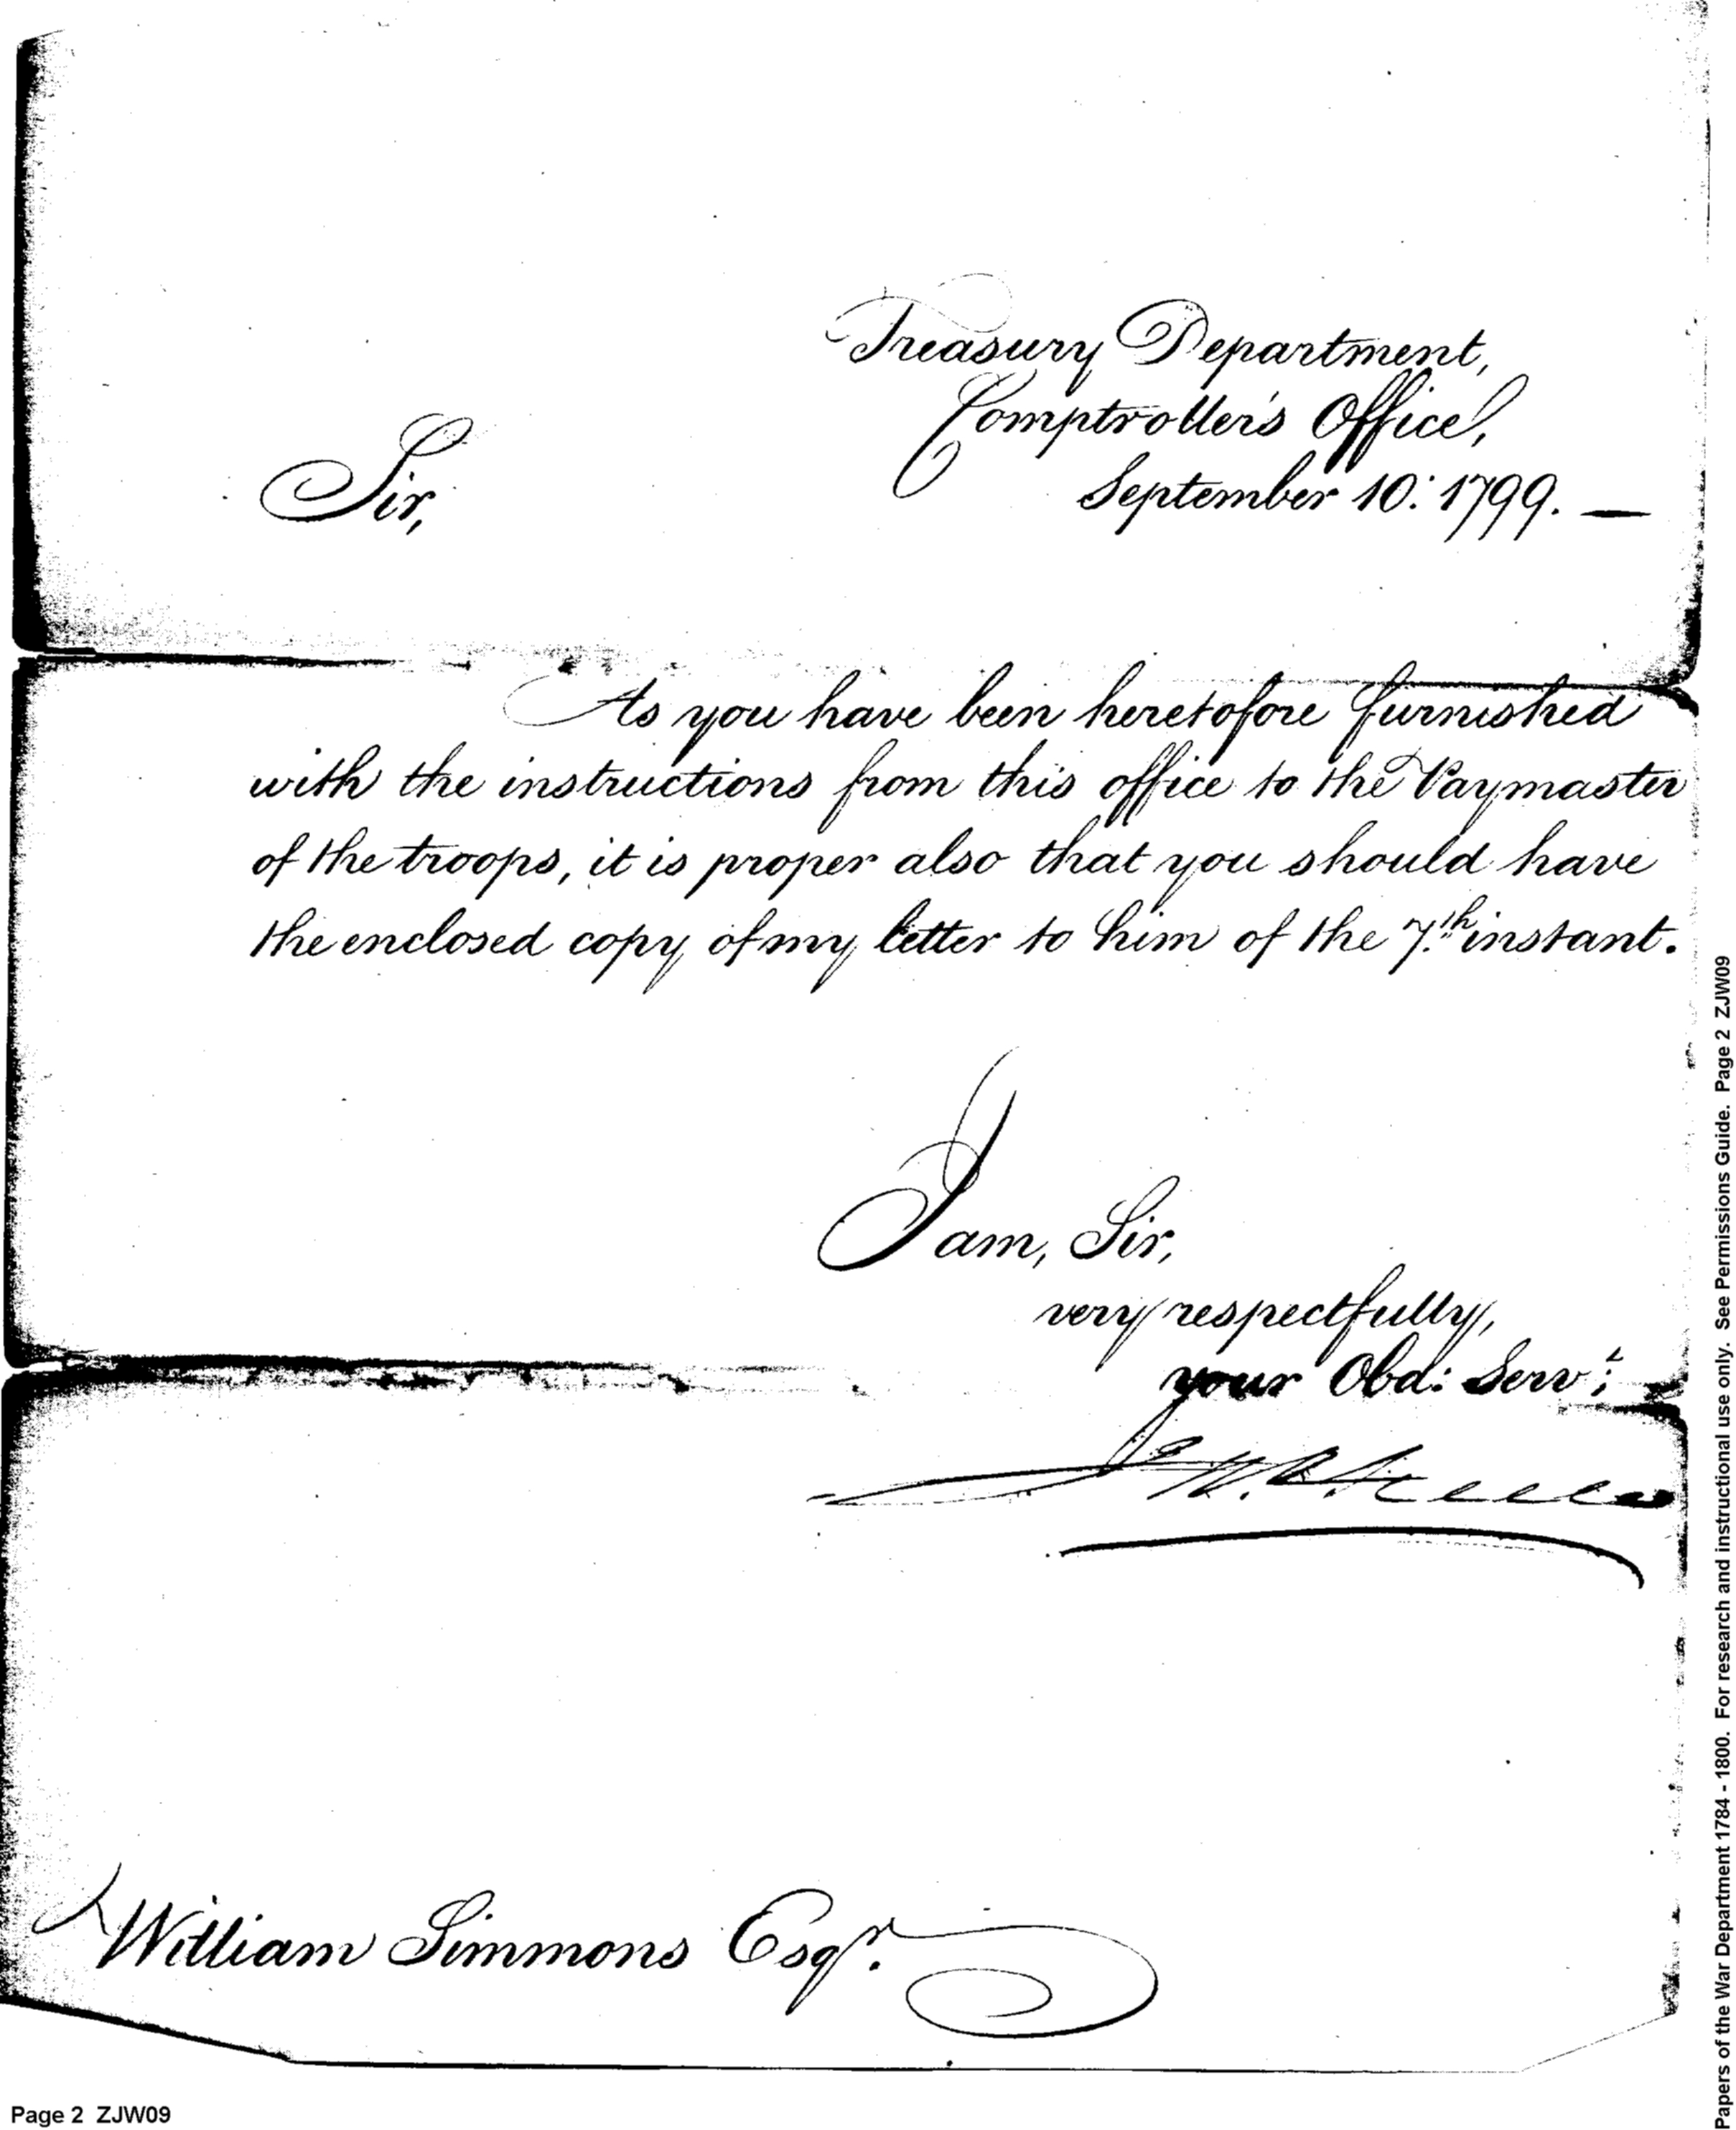 Treasury Department,
Comptroller's Office,
Sir,
September 10: 1799. —
As you have been heretofore furnished
with the instructions from this office to the Paymaster
of the troops, it is proper also that you should have
the enclosed copy of my letter to him of the 7th instant.
I am, Sir,
very respectfully,
your Obd: Servt:
William Simmons Esqr.
Page 2 ZJW09
Papers of the War Department 1784 - 1800. For research and instructional use only. See Permissions Guide. Page 2 ZJW09